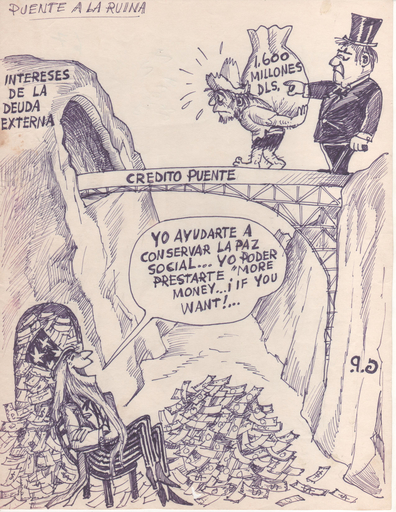 PUENTE A LA RUINA
INTERESES
DE LA
DEUDA
EXTERNA
1.600
MILLONES
DLS,
CREDITO PUENTE
YO AYUDARTE A
CONSERVAR LA PAZ
SOCIAL... YO PODER
PRESTARTE, "MORE
MONEY...¡IF YOU
WANT!...